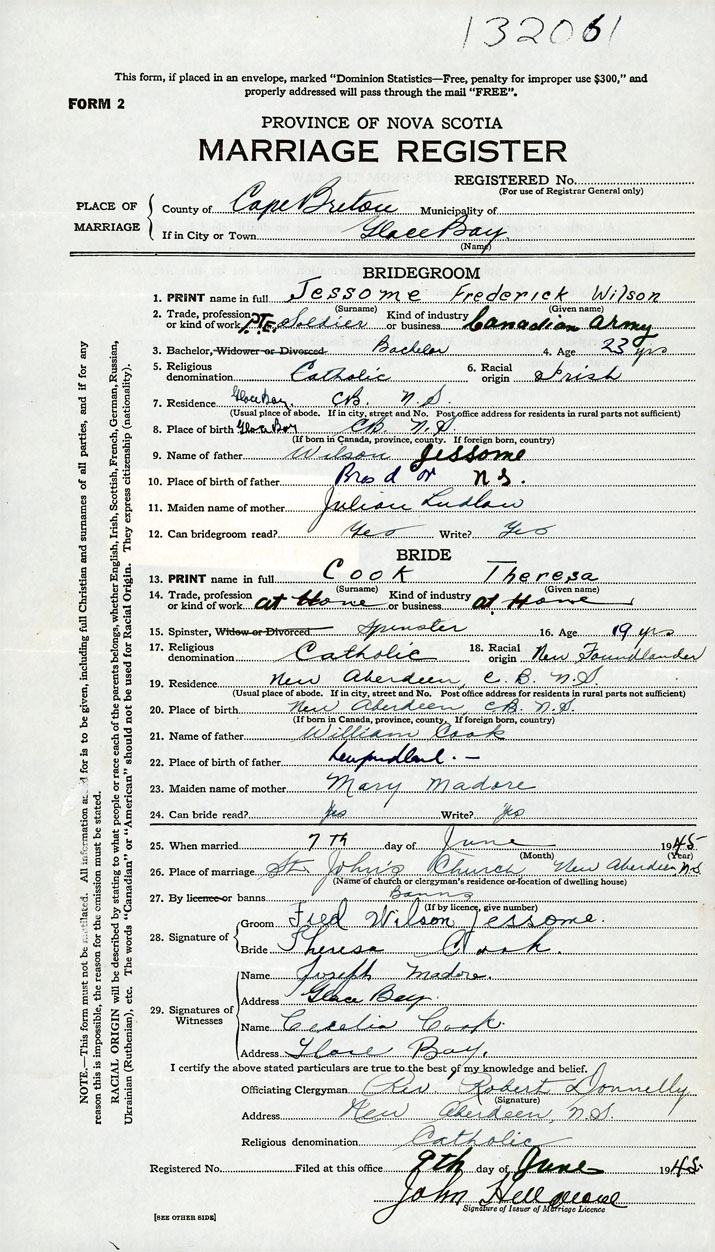 132061
This form, if placed in an envelope, marked "Dominion Statistics—Free, penalty for improper use $300," and
properly addressed will pass through the mail "FREE".
FORM 2
PROVINCE OF NOVA SCOTIA
MARRIAGE REGISTER
REGISTERED No.
(For use of Registrar General only)
PLACE OF MARRIAGE
County of Cape Breton Municipality of
If in City or Town Glace Bay
(Name)
BRIDEGROOM
1. PRINT name in full Jessome Frederick Wilson
(Surname) (Given name)
2. Trade, profession or kind of work PTE Soldier Kind of industry or business Canadian Army
3. Bachelor, Widower or Divorced Bachelor 4. Age 23 yrs
5. Religious denomination Catholic 6. Racial origin Irish
7. Residence Glace Bay, CB. N.S.
(Usual place of abode. If in city, street and No. Post office address for residents in rural parts not sufficient)
8. Place of birth Glace Bay CB. N.S.
(If born in Canada, province, county. If foreign born, country)
9. Name of father Wilson Jessome
10. Place of birth of father Bras d'or N.S.
11. Maiden name of mother Julian Ludlow
12. Can bridegroom read? Yes Write? Yes
BRIDE
13. PRINT name in full Cook Theresa
(Surname) (Given name)
14. Trade, profession or kind of work at Home Kind of industry or business at Home
15. Spinster, Widow or Divorced Spinster 16. Age 19 yrs
17. Religious denomination Catholic 18. Racial origin New Foundlander
19. Residence New Aberdeen, C.B. N.S.
(Usual place of abode. If in city, street and No. Post office address for residents in rural parts not sufficient)
20. Place of birth New Aberdeen, CB. N.S.
(If born in Canada, province, county, If foreign born, country)
21. Name of father William Cook
22. Place of birth of father Newfoundland. —
23. Maiden name of mother Mary Madore
24. Can bride read? Yes Write? Yes
25. When married 7th day of June 1945
(Month) (Year)
26. Place of marriage St. John's Church, New Aberdeen N.S.
(Name of church or clergyman's residence or location of dwelling house)
27. By licence or banns Banns
(If by licence, give number)
28. Signature of
Groom Fred Wilson Jessome.
Bride Theresa Cook.
29. Signatures of Witnesses
Name Joseph Madore.
Address Glace Bay.
Name Cecelia Cook.
Address Glace Bay.
I certify the above stated particulars are true to the best of my knowledge and belief.
Officiating Clergyman Rev Robert Donnelly
(Signature)
Address New Aberdeen, N.S.
Religious denomination Catholic
Registered No. Filed at this office 9th day of June 1945.
John
Signature of Issuer of Marriage Licence
[SEE OTHER SIDE]
NOTE.—This form must not be mutilated. All information asked for is to be given, including full Christian and surnames of all parties, and if for any
reason this is impossible, the reason for the omission must be stated.
RACIAL ORIGIN will be described by stating to what people or race each of the parents belongs, whether English, Irish, Scottish, French, German, Russian,
Ukrainian (Ruthenian), etc. The words "Canadian" or "American" should not be used for Racial Origin. They express citizenship (nationality).